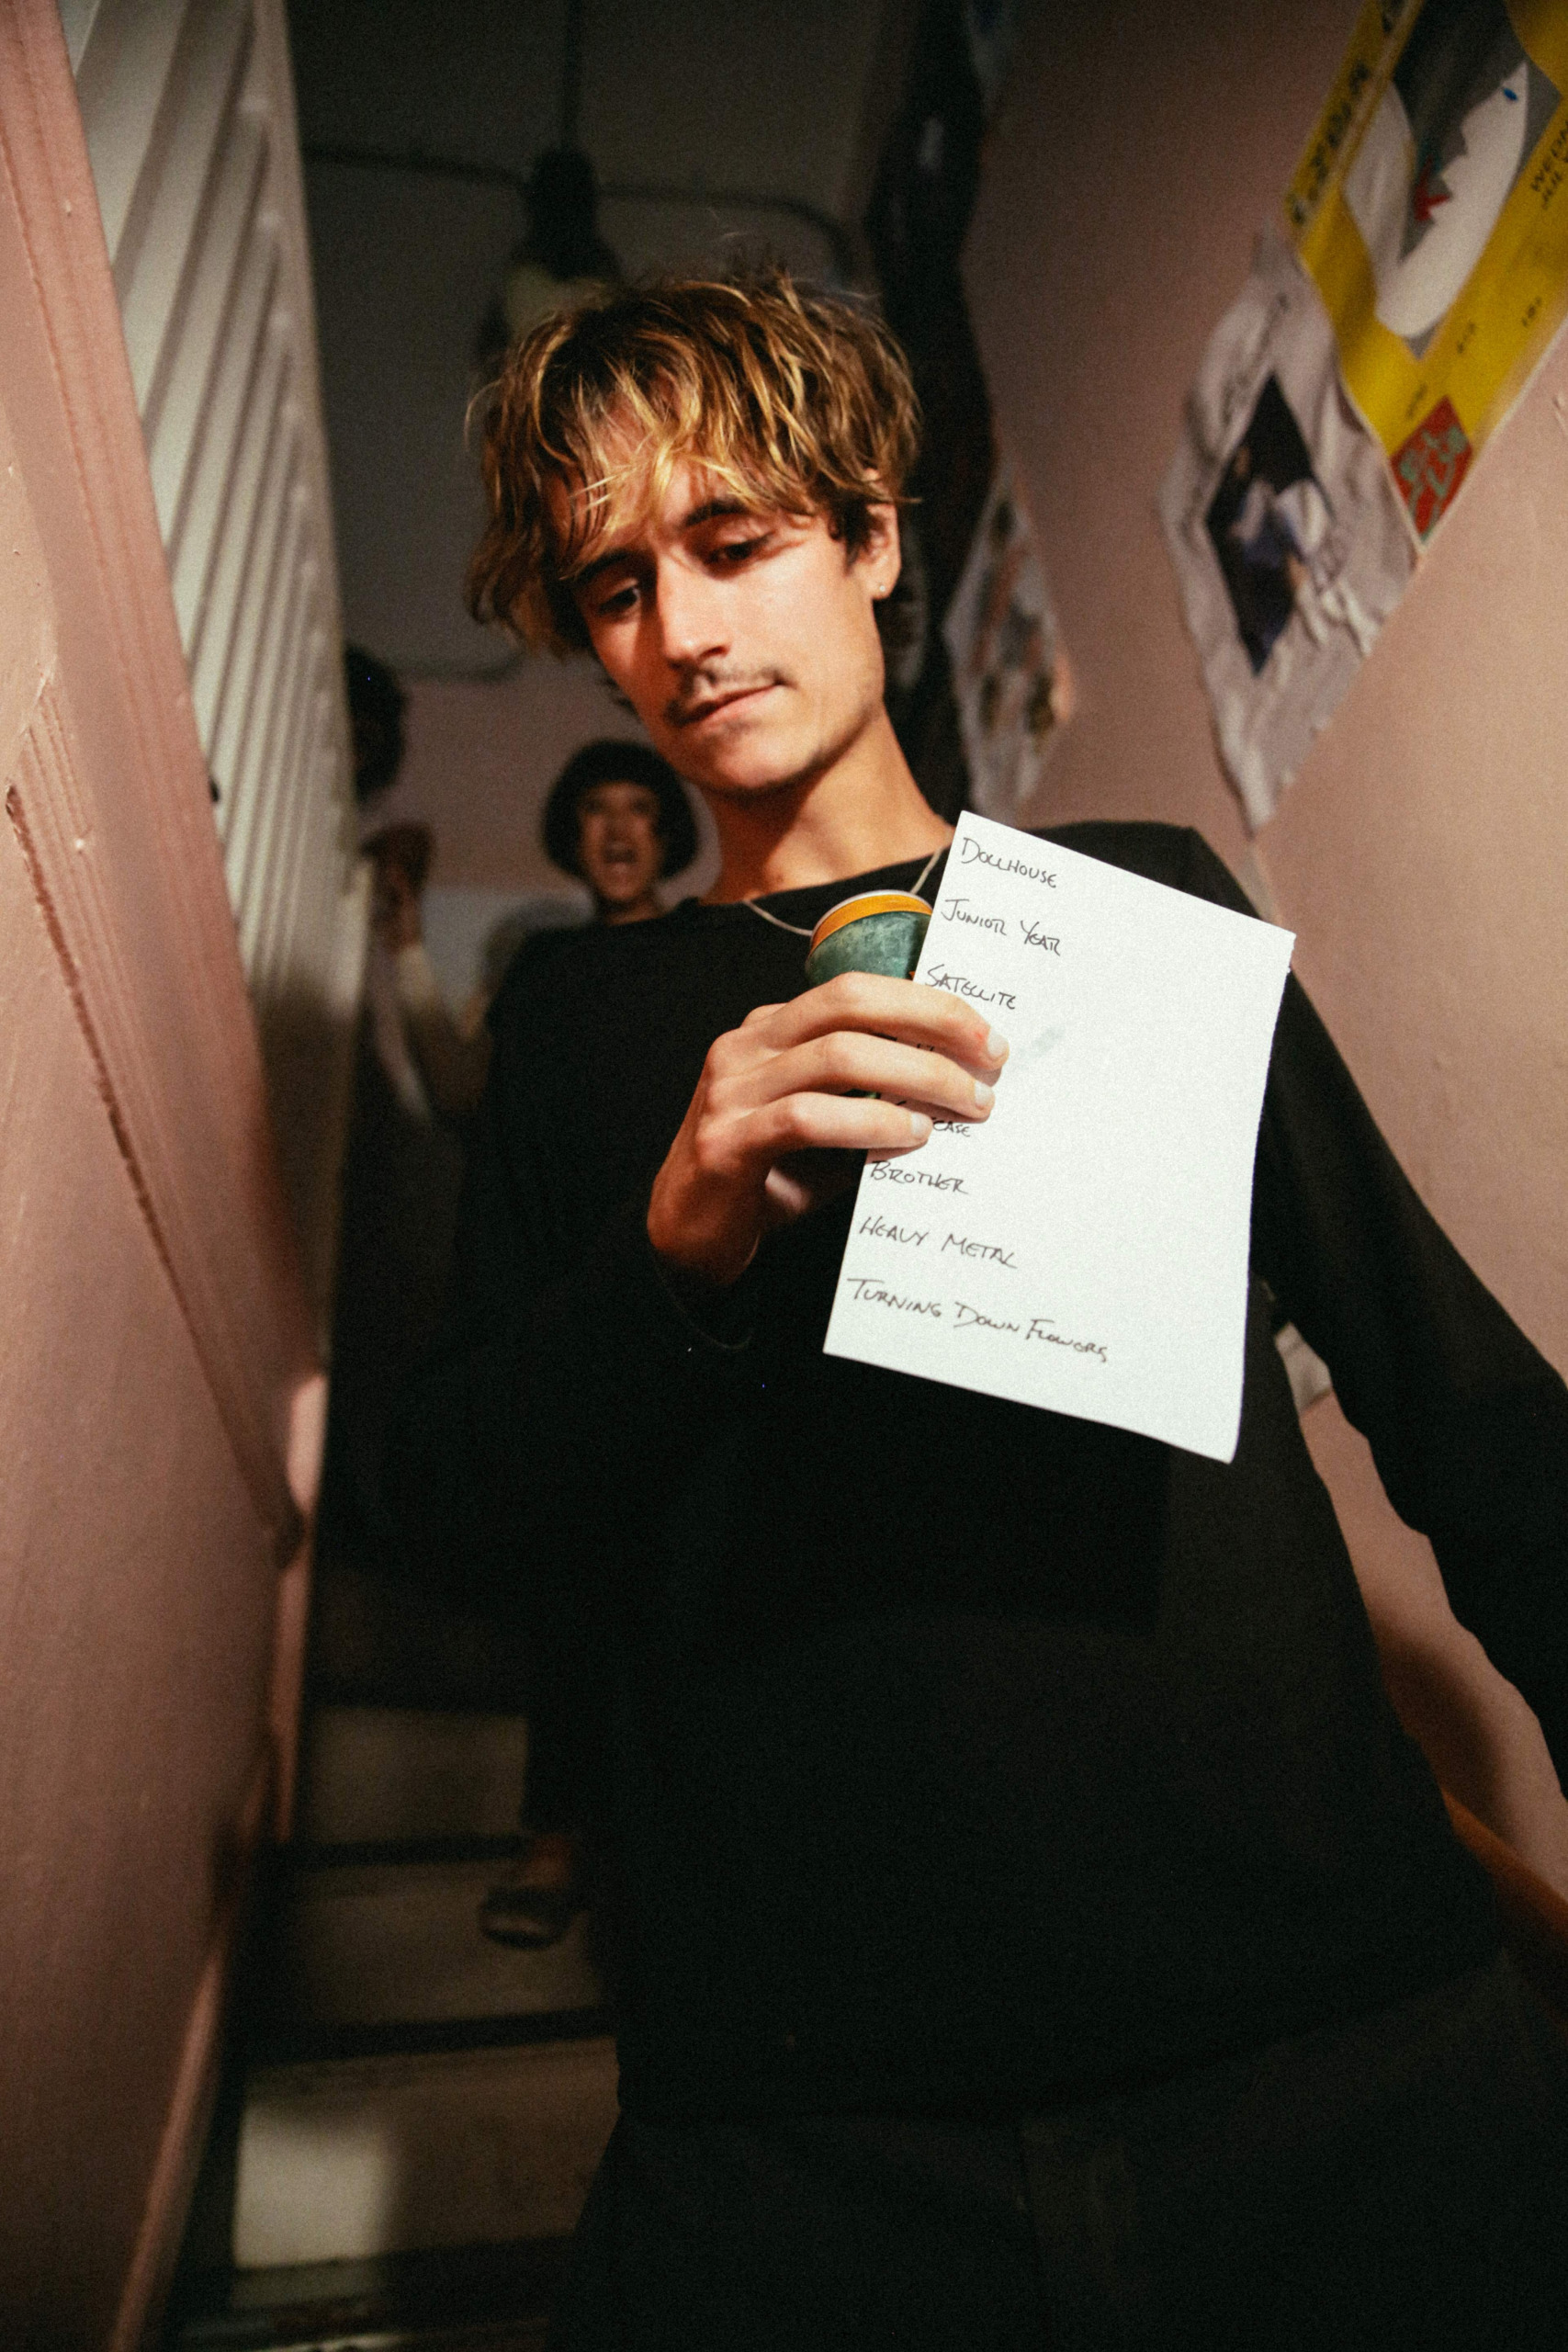 DOLLHOUSE
JUNIOR YEAR
SATELLITE
BROTHER
HEAVY METAL
TURNING DOWN FLOWERS